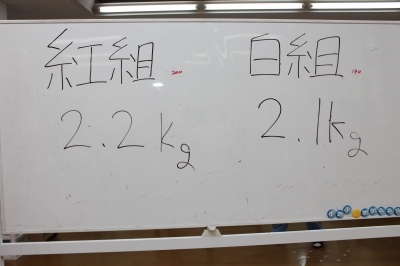 紅組 200
白組 190
2.2kg
2.1kg